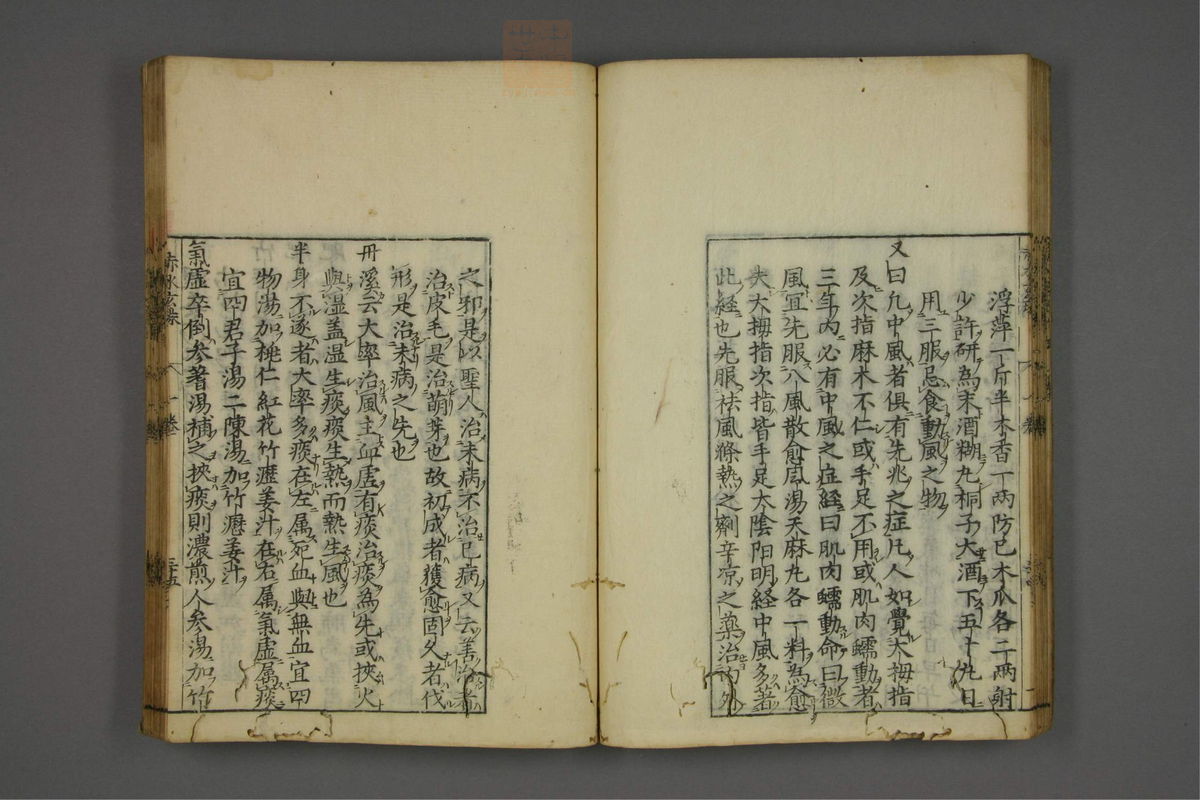 浮萍一斤半木香一两防已木瓜各二两射
少許研為末酒糊丸桐子大酒下五十丸日
用三服忌食動風之物
又曰凡中風者俱有先兆之症凡人如覺大拇指
及次指麻木不仁或手足不用或肌肉蠕動者
三年内必有中風之症経曰肌肉蠕動命曰微
風宜先服八風散愈風湯天麻丸各一料為愈
夫大拇指次指皆手足太陰阳明経中風多著
此経也先服祛風滌熱之劑辛凉之薬治内外
之邪是以聖人治未病不治已病又云善治者
治皮毛是治萌芽也故初成者獲愈固久者伐
形是治未病之先也
丹溪云大率治風主血虚有痰治痰為先或挾火
與湿盖湿生痰痰生熱而熱生風也
半身不遂者大率多痰在左属死血與無血宜四
物湯加桃仁紅花竹瀝姜汁在右属氣虚属痰
宜四君子湯二陳湯加竹瀝姜汁
氣虚卒倒参著湯補之挾痰則濃煎人参湯加竹
赤水玄珠
一卷
三十五